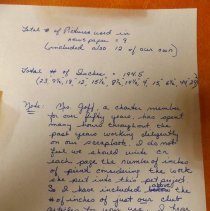 Total # of Pictures used in
news paper = 9
(included also 12 of our own)
Total # of Inches = 194.5
(23, 9¼, 19, 12, 15¼, 8¾, 14¾, 4, 15, 6¾, 44, 23
Note: Mrs. Goff, a charter member
for our fifty years, has spent
many hours throughout the
past years working diligently
on our scrapbook, I do not
feel we should write on
each page the number of inches
of print considering the work
she put into this yet myself.
So I have included above the
# of inches of just our club